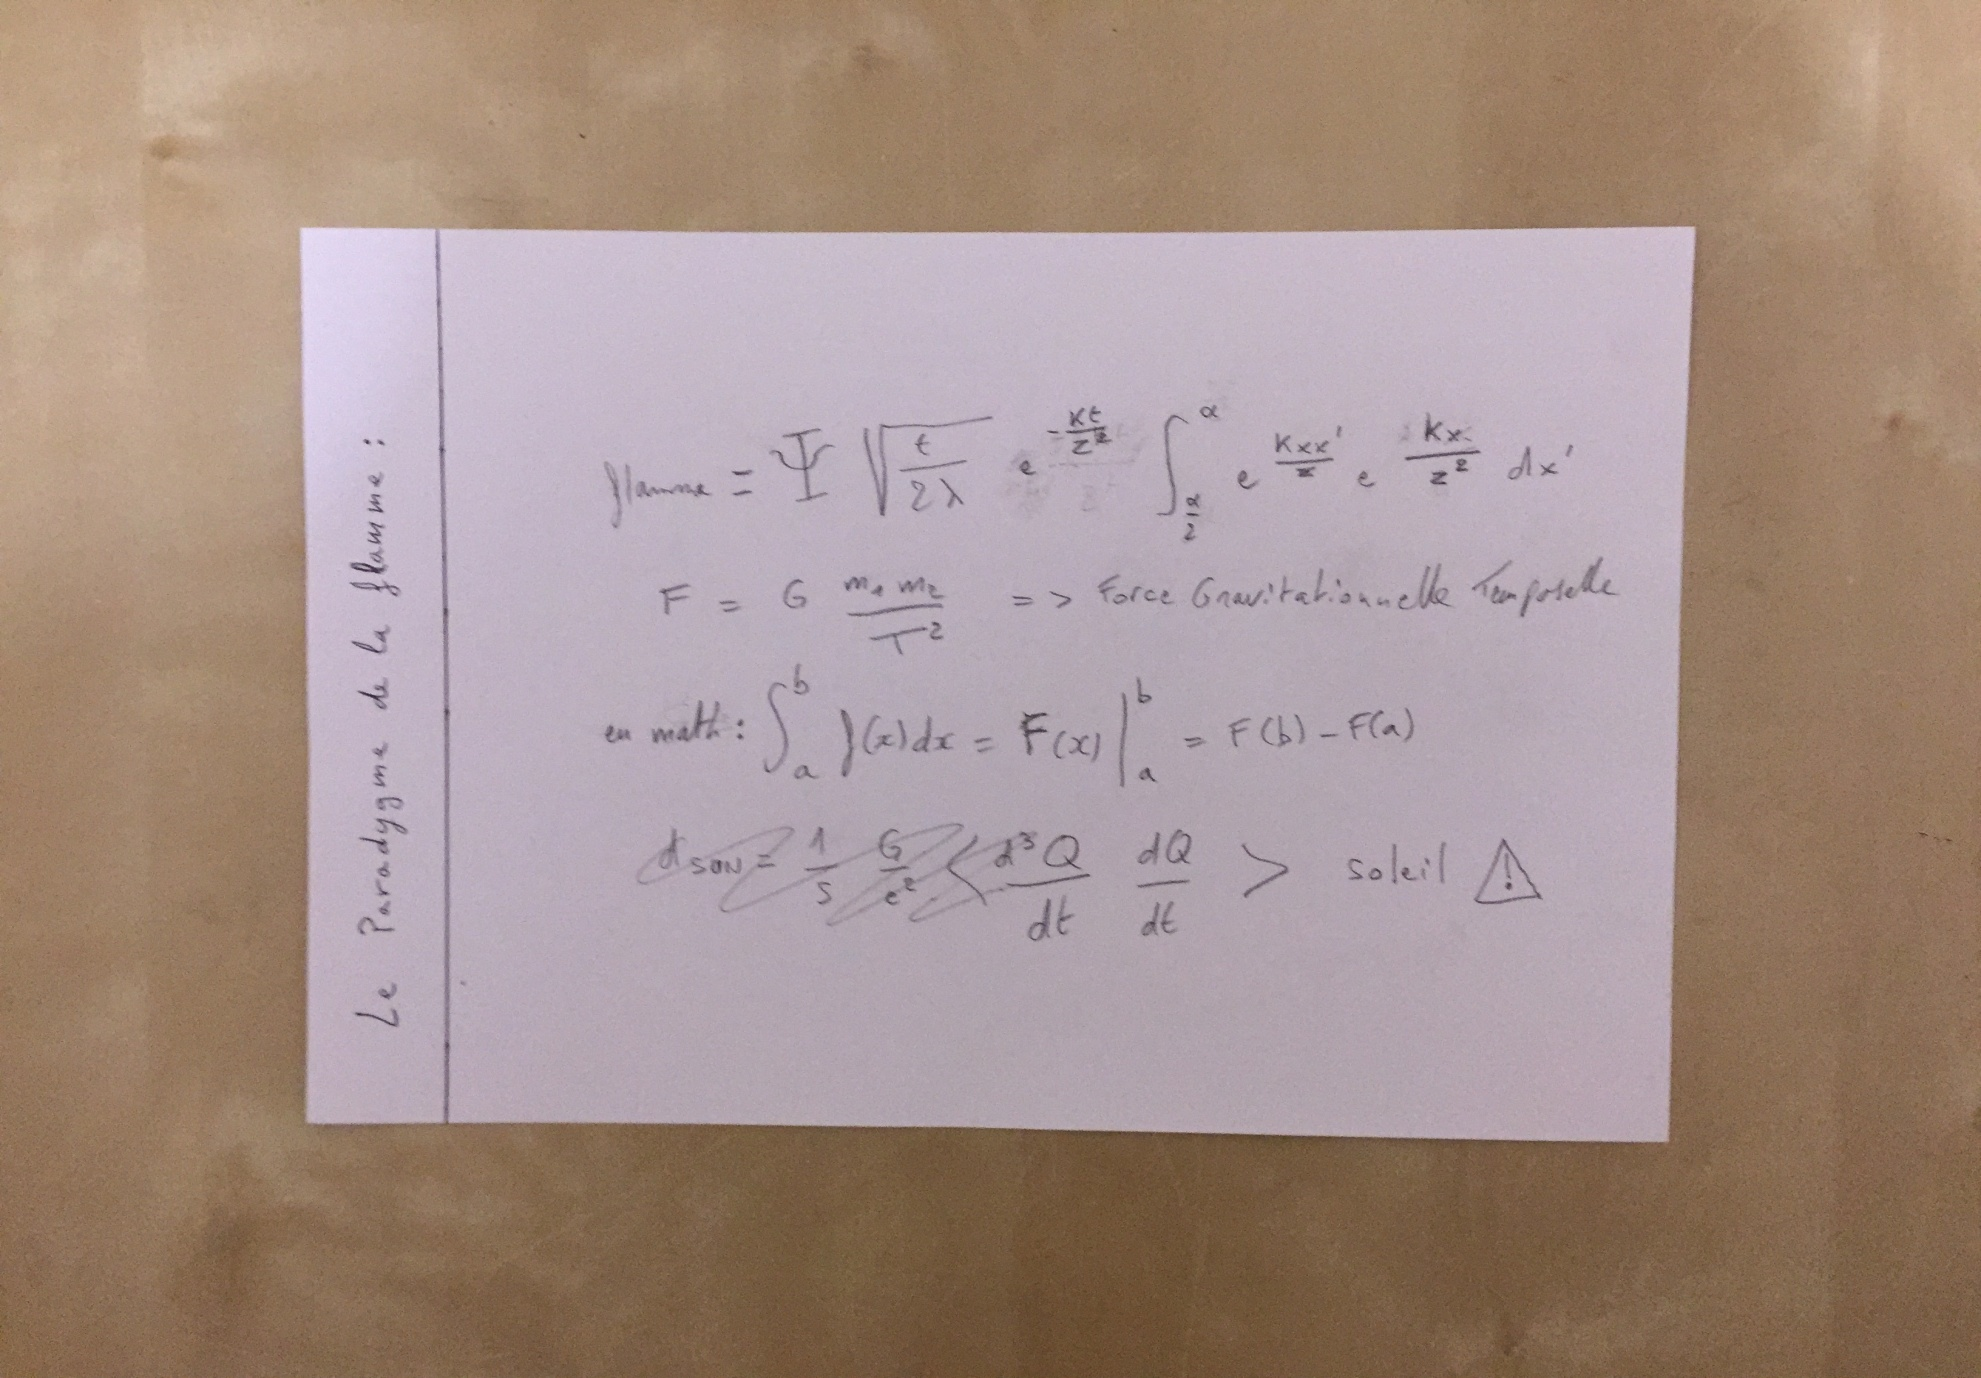 Le Paradygme de la flamme :
flamme = Ψ √(t/2λ) e^(-Kt/z²) ∫_(α/2)^α e^(Kxx'/z) e^(Kx/z²) dx'
F = G m₁ m₂ / T² => Force Gravitationnelle Temporelle
en math : ∫_a^b f(x)dx = F(x) |_a^b = F(b) - F(a)
d SON = 1/5 G/c² < d³Q/dt dQ/dt > soleil ⚠